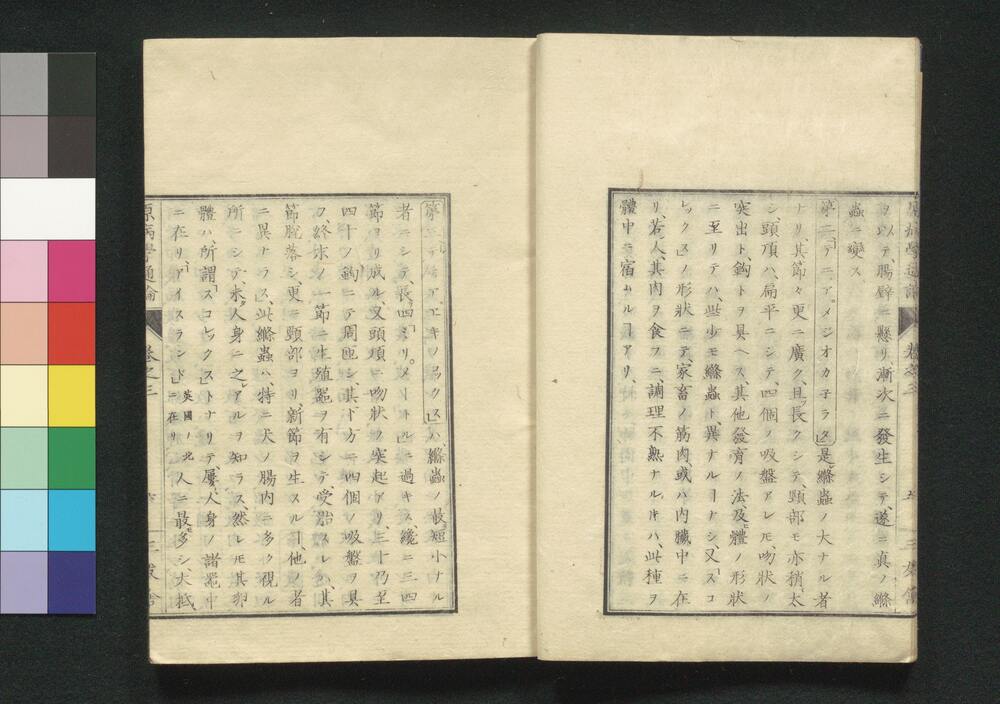 ヲ以テ、腸壁ニ懸リ、漸次ニ發生シテ、遂ニ真ノ絛
蟲ニ變ス、
第二「テニア、メジオカ子ラタ」是レ絛蟲ノ大ナル者
ナリ、其節々更ニ廣ク、且ツ長クシテ、頸部モ亦稍太
シ、頭頂ハ、扁平ニシテ、四個ノ吸盤アレ𪜈、吻狀ノ
突出ト、鈎トヲ具ヘス、其他發育ノ法、及ヒ體ノ形狀
ニ至リテハ、些少モ絛蟲ト、異ナルヿナシ、又「スコ
レックス」ノ形狀ニテ、家畜ノ筋肉、或ハ内臓中ニ在
リ、若シ人、其肉ヲ食フニ、調理不熟ナルキハ、此種ヲ
體中ニ宿サルヿアリ、
第三「テニア、エキノコックス」ハ絛蟲ノ最モ短小ナル
者ニシテ、長サ四「ミリメートル」ニ過キス、纔ニ三四
節ヨリ成ル、又頭頂ニ吻狀ノ突起アリ、三十乃至
四十ノ鈎ニテ周匝シ、其下方ニ四個ノ吸盤ヲ具
フ、終末ノ一節ニ生殖器ヲ有シテ、受胎スレハ、其
節脱落シ、更ニ頸部ヨリ新節ヲ生スルヿ、他ノ者
ニ異ナラス、此絛蟲ハ、特ニ犬ノ腸内ニ多ク視ル
所ニシテ、未タ人身ニ之レアルヲ知ラス、然レ𪜈其卵
體ハ、所謂「スコレックス」トナリテ、屢人身ノ諸器中
ニ在リ、「アイスランド」英國ノ北ニ在リ人ニ最モ多シ、大抵
原病學通論 卷之三